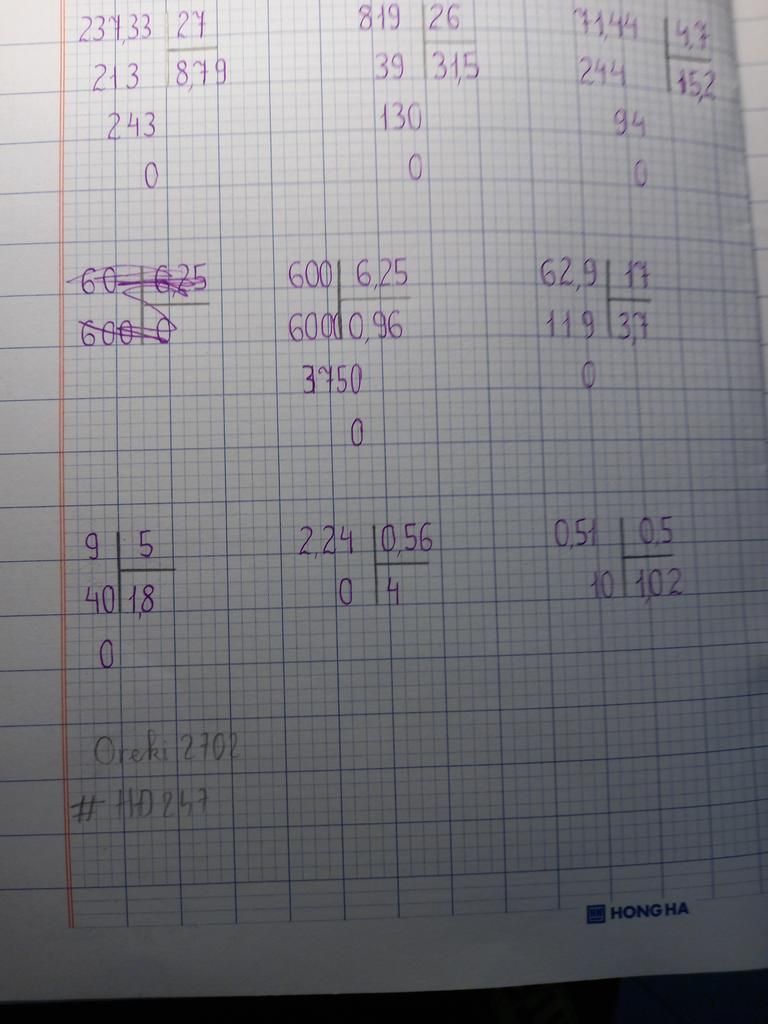 237,33 27
213 8,79
243
0
819 26
39 31,5
130
0
71,44 4,7
244 15,2
94
0
60 6,25
600 0
600 6,25
6000 0,96
3750
0
62,9 17
119 3,7
0
9 5
40 1,8
0
2,24 0,56
0 4
0,51 0,5
10 1,02
Oreki 2702
# HD247
HONG HA